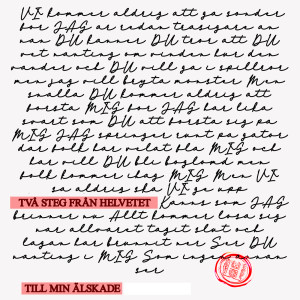 VI kommer aldrig att gå sönder
för JAG är redan trasigare än
nån DU känner DU tror att DU
vet nånting om vinden hur den
vänder och DU vill gå i spillror
men jag vill bryta mönster Men
snälla DU kommer aldrig att
borsta MIG för JAG har lika
svårt som DU att borsta sig på
MIG JAG springer runt på gator
där folk har velat bli MIG och
här vill DU bli
folk kommer ihåg MIG Men VI
så aldrig ska VI ge upp
TVÅ STEG FRÅN HELVETET Känns som JAG
brinner nu Allt kommer lösa sig
när allvaret tagit slut och
lågan har brunnit ner Ser DU
nånting i MIG Som ingen annan
ser
TILL MIN ÄLSKADE